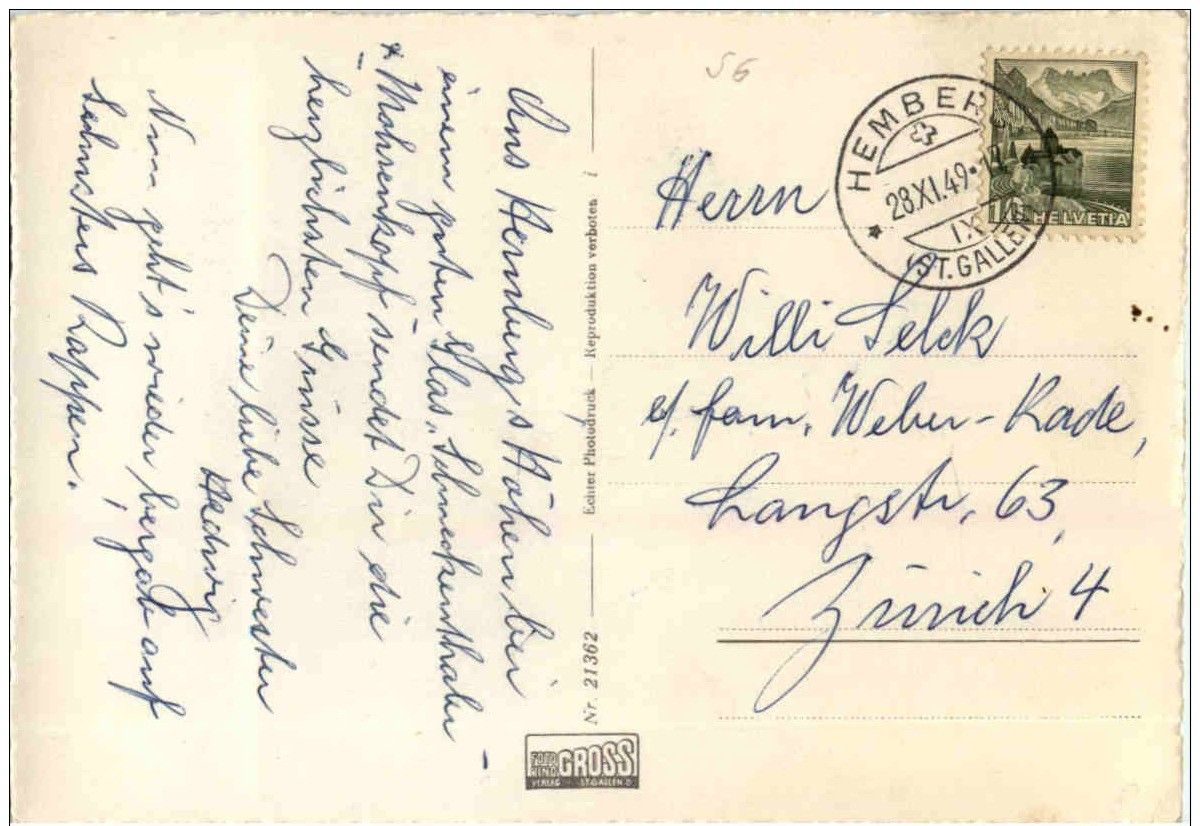 Aus Hembergs Höhen bei
einem guten Glas, Schneckenthaler -
* Mohrenkopf sendet Dir die
herzlichsten Grüsse
Deine liebe Schwester
Hedwig
Nun geht's wieder bergab auf
Schusters Rappen!
Nr. 21362 — Echter Photodruck — Reproduktion verboten i
FOTO GROSS
VERLAG ST. GALLEN O.
56
HEMBERG
28.XI.49
IX
(ST. GALLEN)
10 HELVETIA
Herrn
Willi Selck
c/. fam. Weber-Rade,
Langstr. 63,
Zürich 4